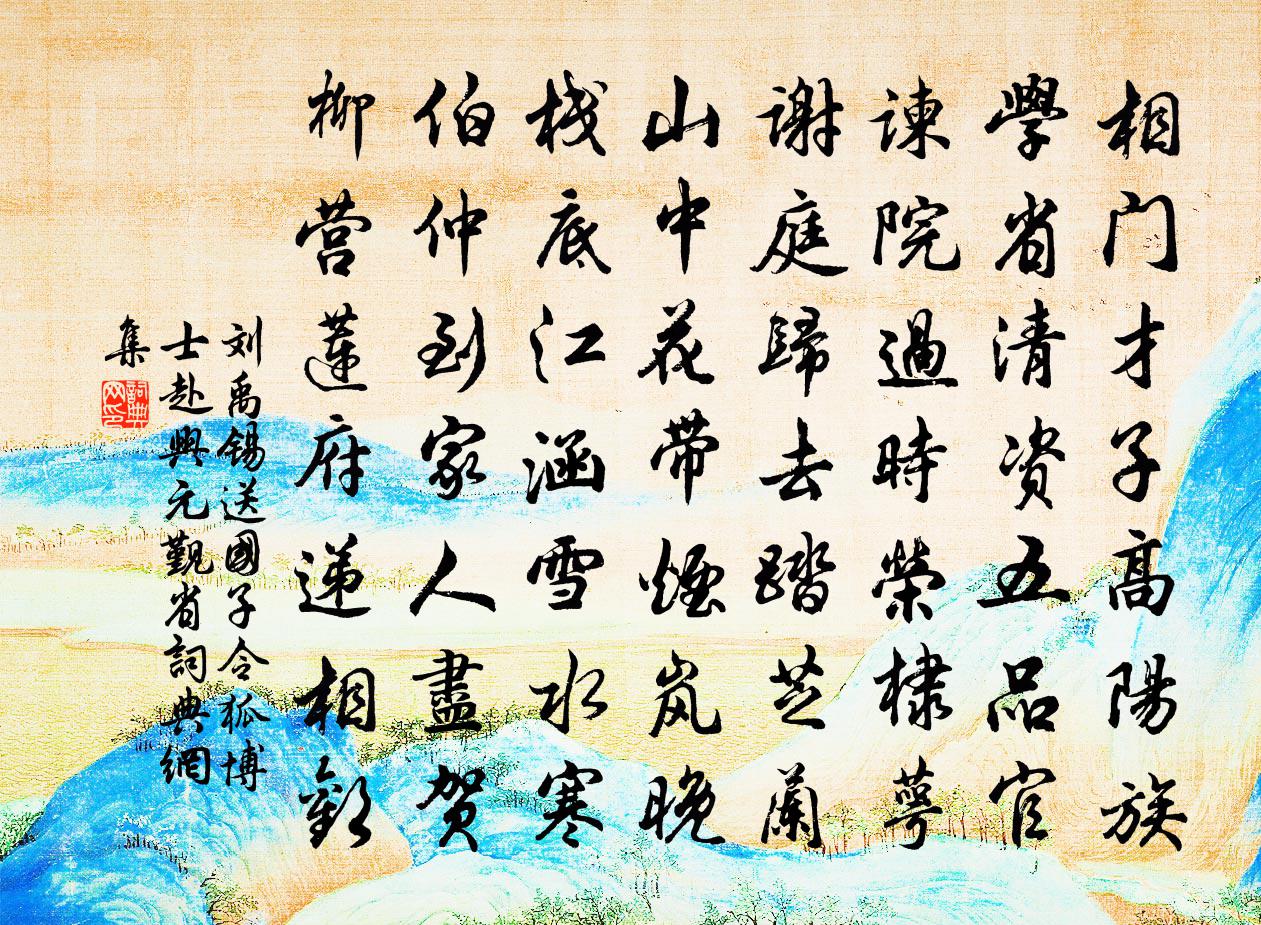 相门才子高陽族
學省清资五品官
諫院過時榮棣萼
謝庭歸去踏芝蘭
山中花带煙岚晚
栈底江涵雪水寒
伯仲到家人盡贺
柳营莲府递相歡
刘禹锡送國子令狐博
士赴興元觐省詞典網
集
詞典网印